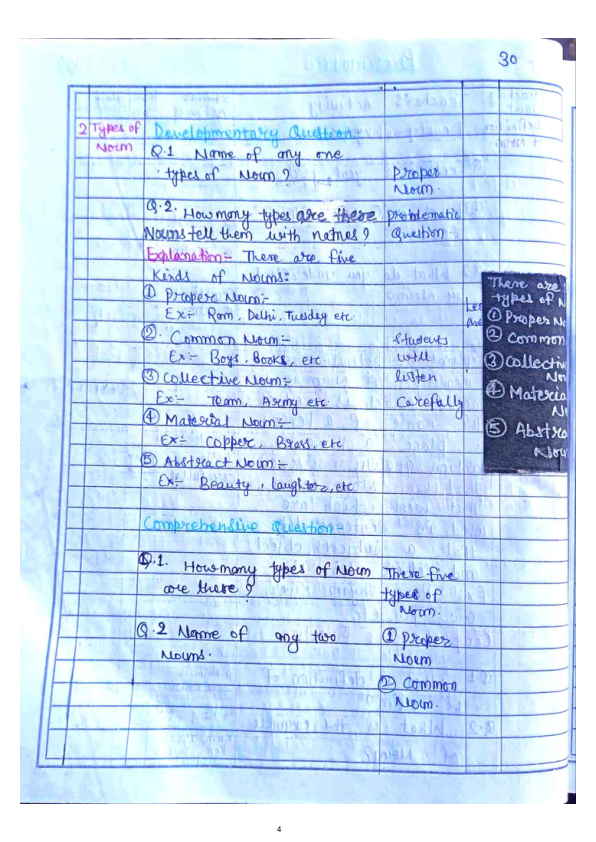 30
2 Types of
Noun
Developmentary Question:-
Q.1 Name of any one
types of Noun?
Proper
Noun.
Q.2. How many types are there
Nouns tell them with names?
Problematic
Question.
Explanation:- There are five
Kinds of Nouns:
① Proper Noun:-
Ex:- Ram, Delhi, Tuesday etc.
②. Common Noun:-
Ex:- Boys, Books, etc.
③ Collective Noun:-
Ex:- Team, Army etc.
④ Material Noun:-
Ex:- Copper, Brass, etc.
⑤ Abstract Noun:-
Ex:- Beauty, laughter, etc
Students
will
listen
carefully
There are
types of N
① Proper No
② Common
③ Collectiv
Nou
④ Materia
N
⑤ Abstra
Nou
Comprehensive Question:-
Q.1. How many types of Noun
are there?
There five
types of
Noun.
Q.2 Name of any two
Nouns.
① Proper
Noun
② Common
Noun.
4